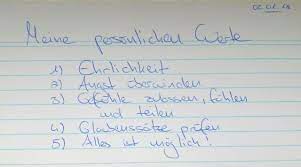 02.01.18
Meine persönlichen Werte
1) Ehrlichkeit
2) Angst überwinden
3) Gefühle zulassen, fühlen
und teilen
4) Glaubenssätze prüfen
5) Alles ist möglich!